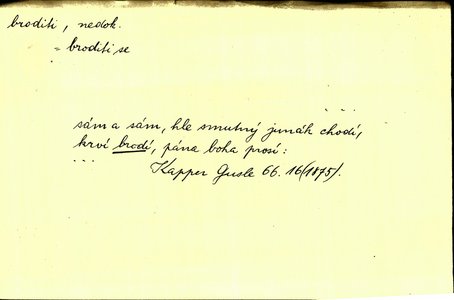 broditi, nedok.
= broditi se
. . .
sám a sám, hle smutný junák chodí,
krví brodí, pána boha prosí:
. . .
Kapper Gusle 66. 16 (1875).